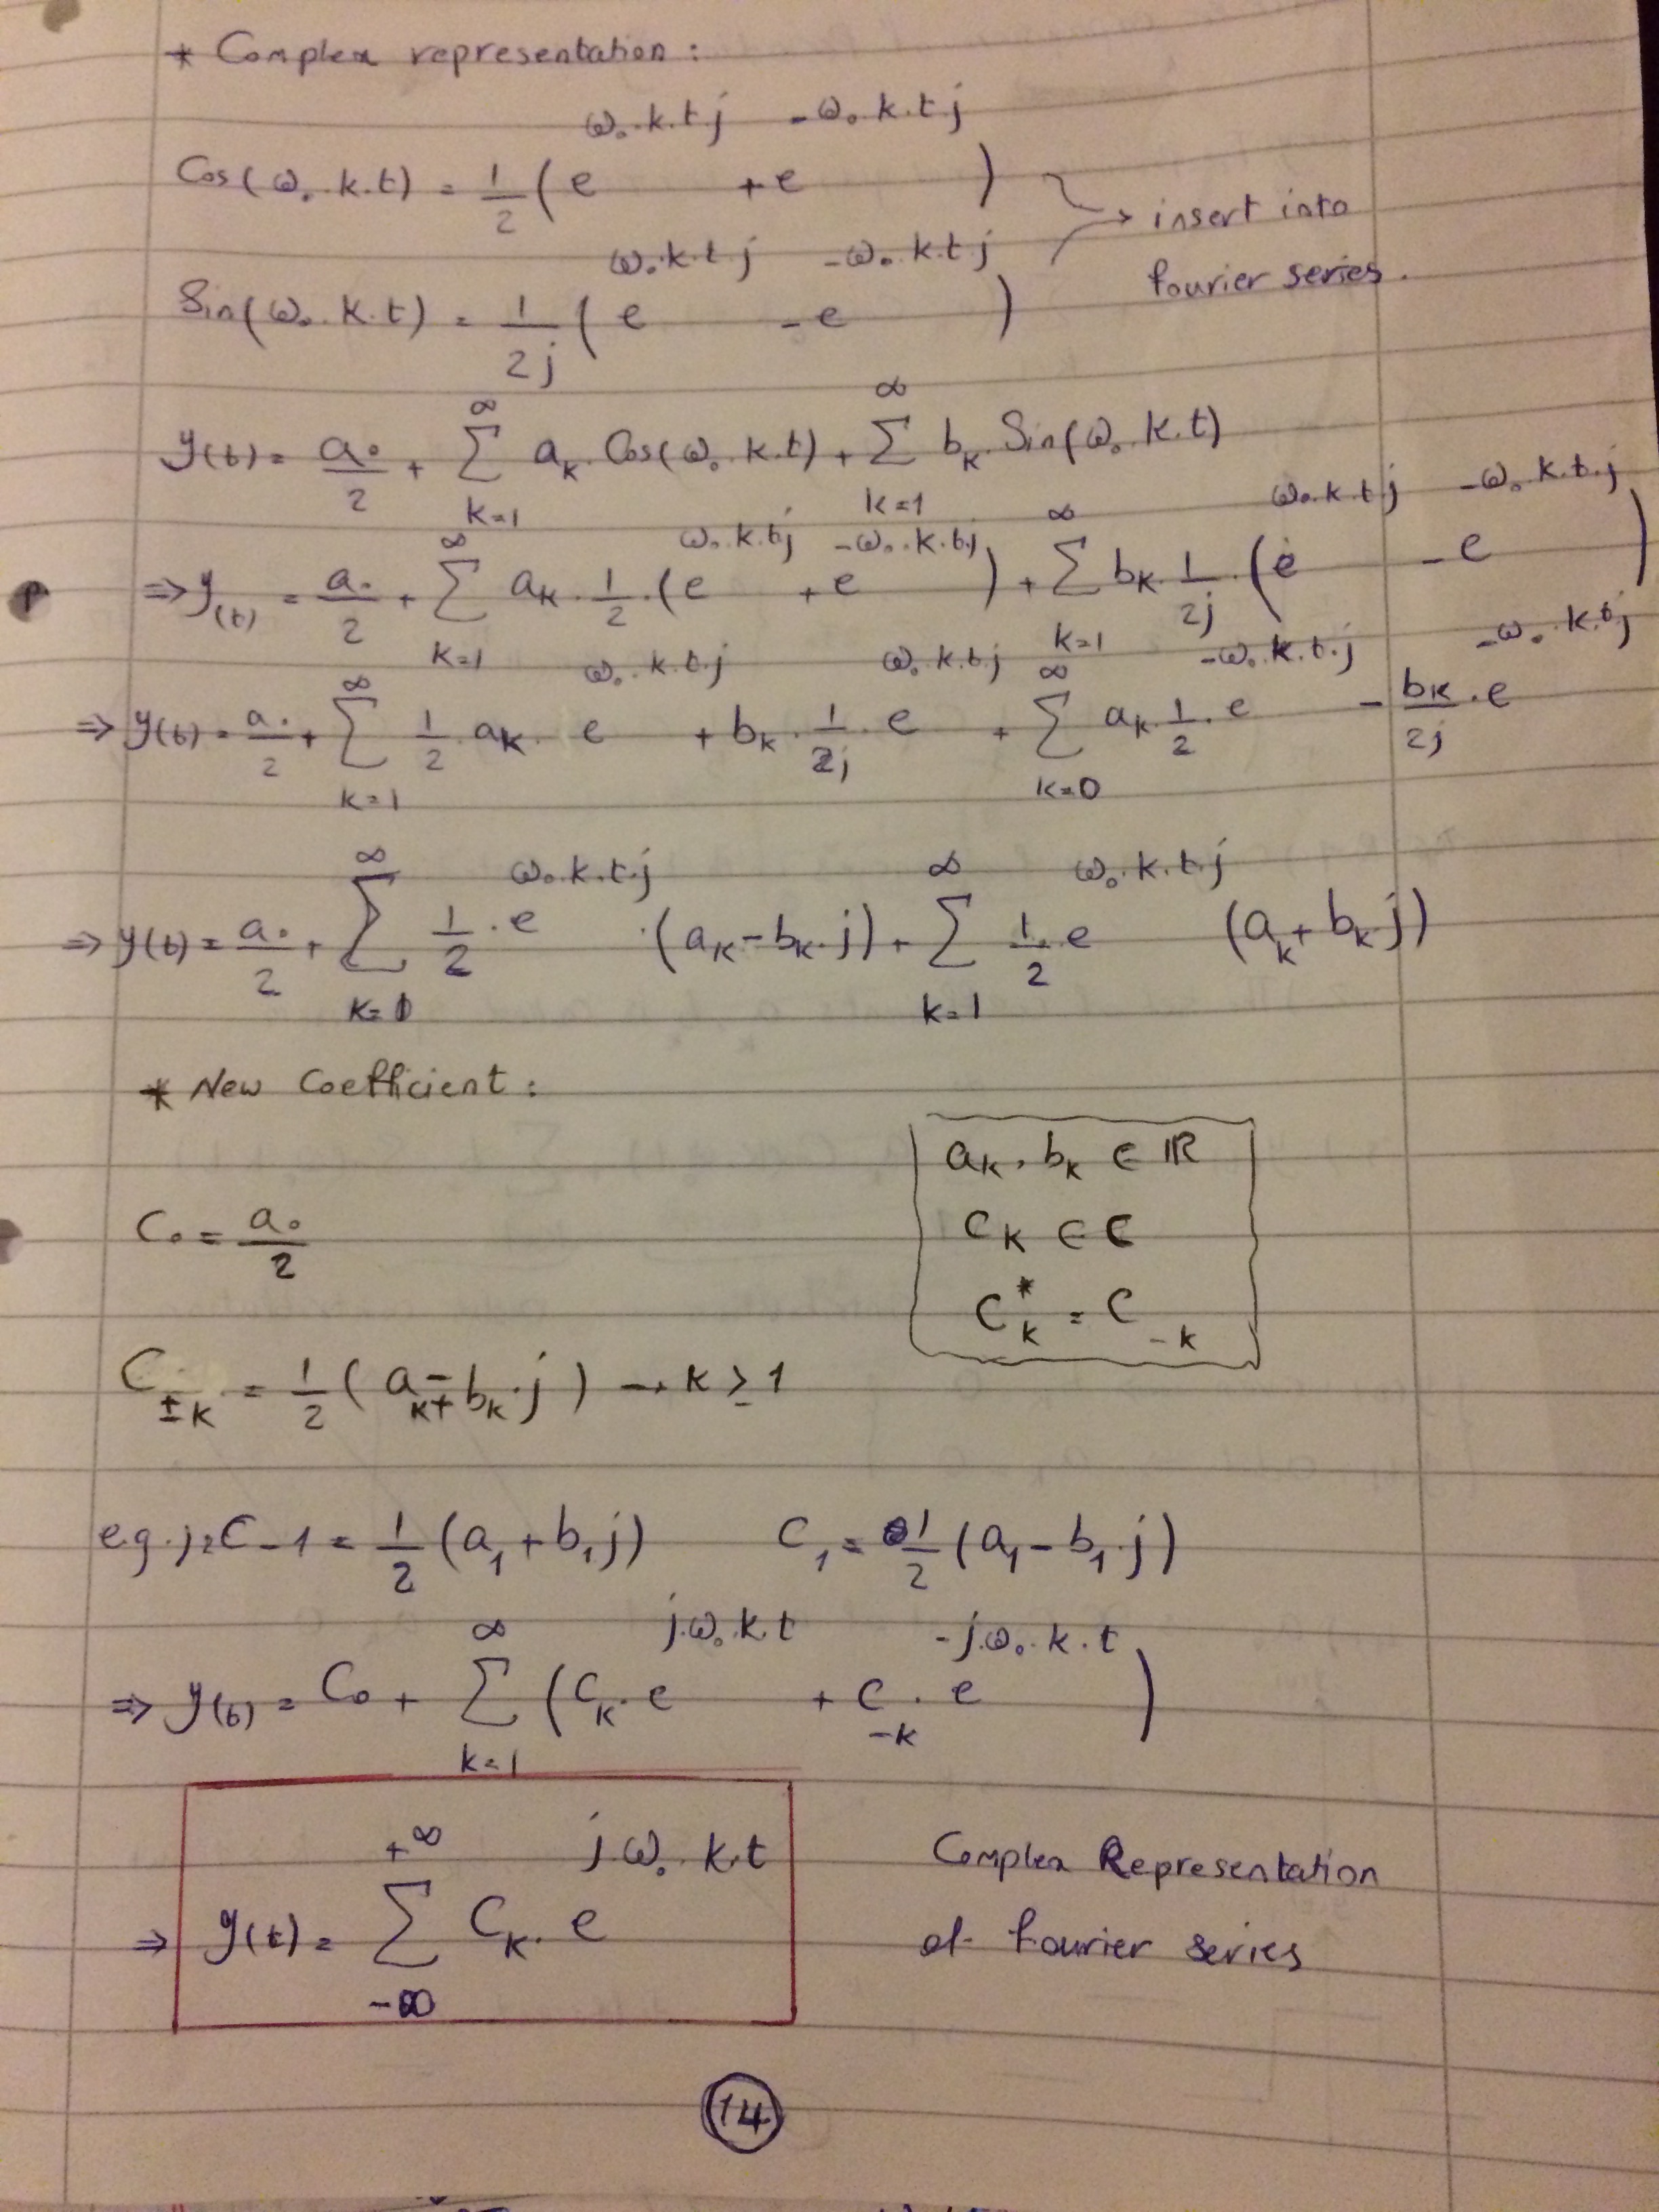 * Complex representation :
Cos(ω₀.k.t) = 1/2 (e^(ω₀.k.t.j) + e^(-ω₀.k.t.j))
Sin(ω₀.k.t) = 1/2j (e^(ω₀.k.t.j) - e^(-ω₀.k.t.j))
→ insert into
fourier series.
y(t) = a₀/2 + ∑_{k=1}^{∞} a_k.Cos(ω₀.k.t) + ∑_{k=1}^{∞} b_k.Sin(ω₀.k.t)
⇒ y(t) = a₀/2 + ∑_{k=1}^{∞} a_k.1/2.(e^(ω₀.k.t.j) + e^(-ω₀.k.t.j)) + ∑_{k=1}^{∞} b_k.1/2j.(e^(ω₀.k.t.j) - e^(-ω₀.k.t.j))
⇒ y(t) = a₀/2 + ∑_{k=1}^{∞} 1/2.a_k.e^(ω₀.k.t.j) + b_k.1/2j.e^(ω₀.k.t.j) + ∑_{k=0}^{∞} a_k.1/2.e^(-ω₀.k.t.j) - b_k/2j.e^(-ω₀.k.t.j)
⇒ y(t) = a₀/2 + ∑_{k=1}^{∞} 1/2.e^(ω₀.k.t.j).(a_k - b_k.j) + ∑_{k=1}^{∞} 1/2.e^(ω₀.k.t.j) (a_k + b_k.j)
* New Coefficient :
a_k, b_k ∈ ℝ
C_k ∈ ℂ
C_k^* = C_{-k}
C₀ = a₀/2
C_{±k} = 1/2 (a_k ∓ b_k.j) → k ≥ 1
e.g. j: C-1 = 1/2 (a₁ + b₁j) C₁ = 1/2 (a₁ - b₁.j)
⇒ y(t) = C₀ + ∑_{k=1}^{∞} (C_k.e^(j.ω₀.k.t) + C_{-k}.e^(-j.ω₀.k.t))
⇒ y(t) = ∑_{-∞}^{+∞} C_k.e^(j.ω₀.k.t)
Complex Representation
of fourier series
14